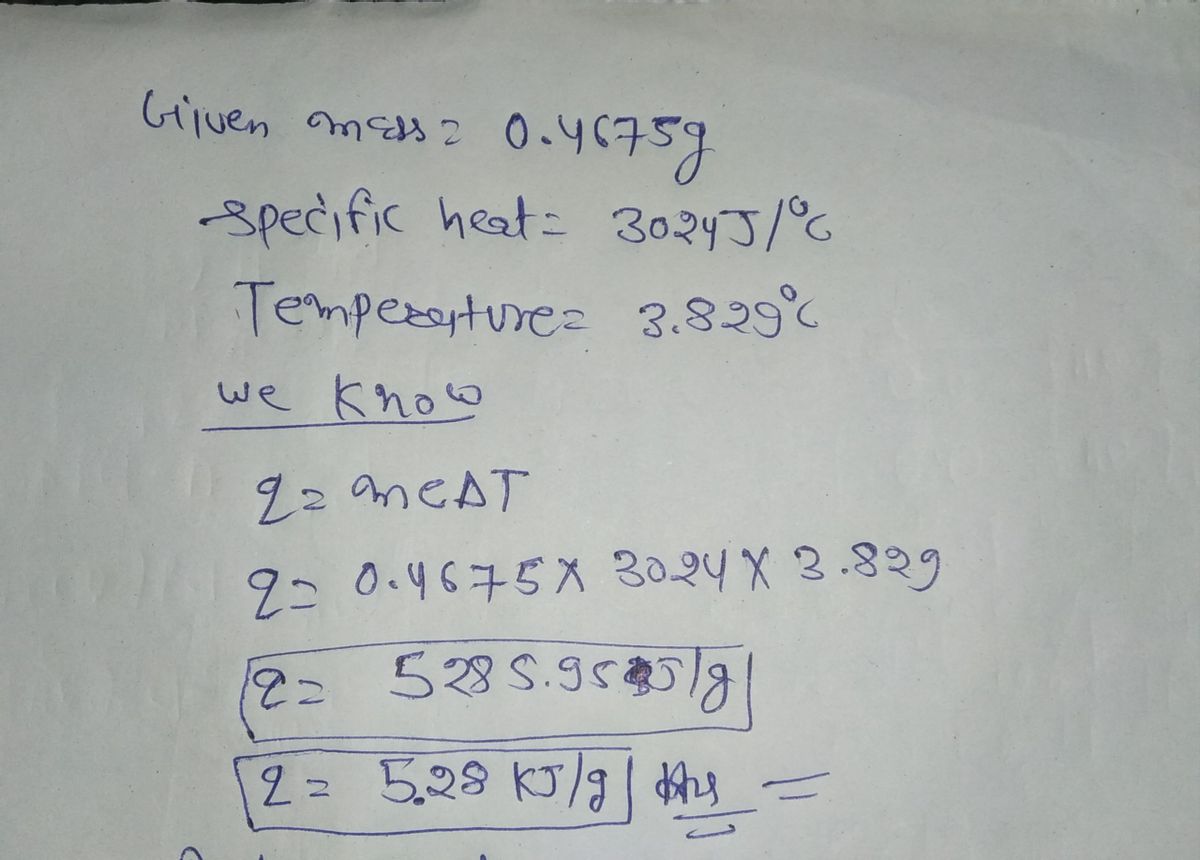 Given mass = 0.4675g
specific heat = 3024J/°C
Temperature = 3.829°C
we know
q = mcΔT
q = 0.4675 X 3024 X 3.829
q = 5285.95 J/g
q = 5.28 KJ/g Ans =